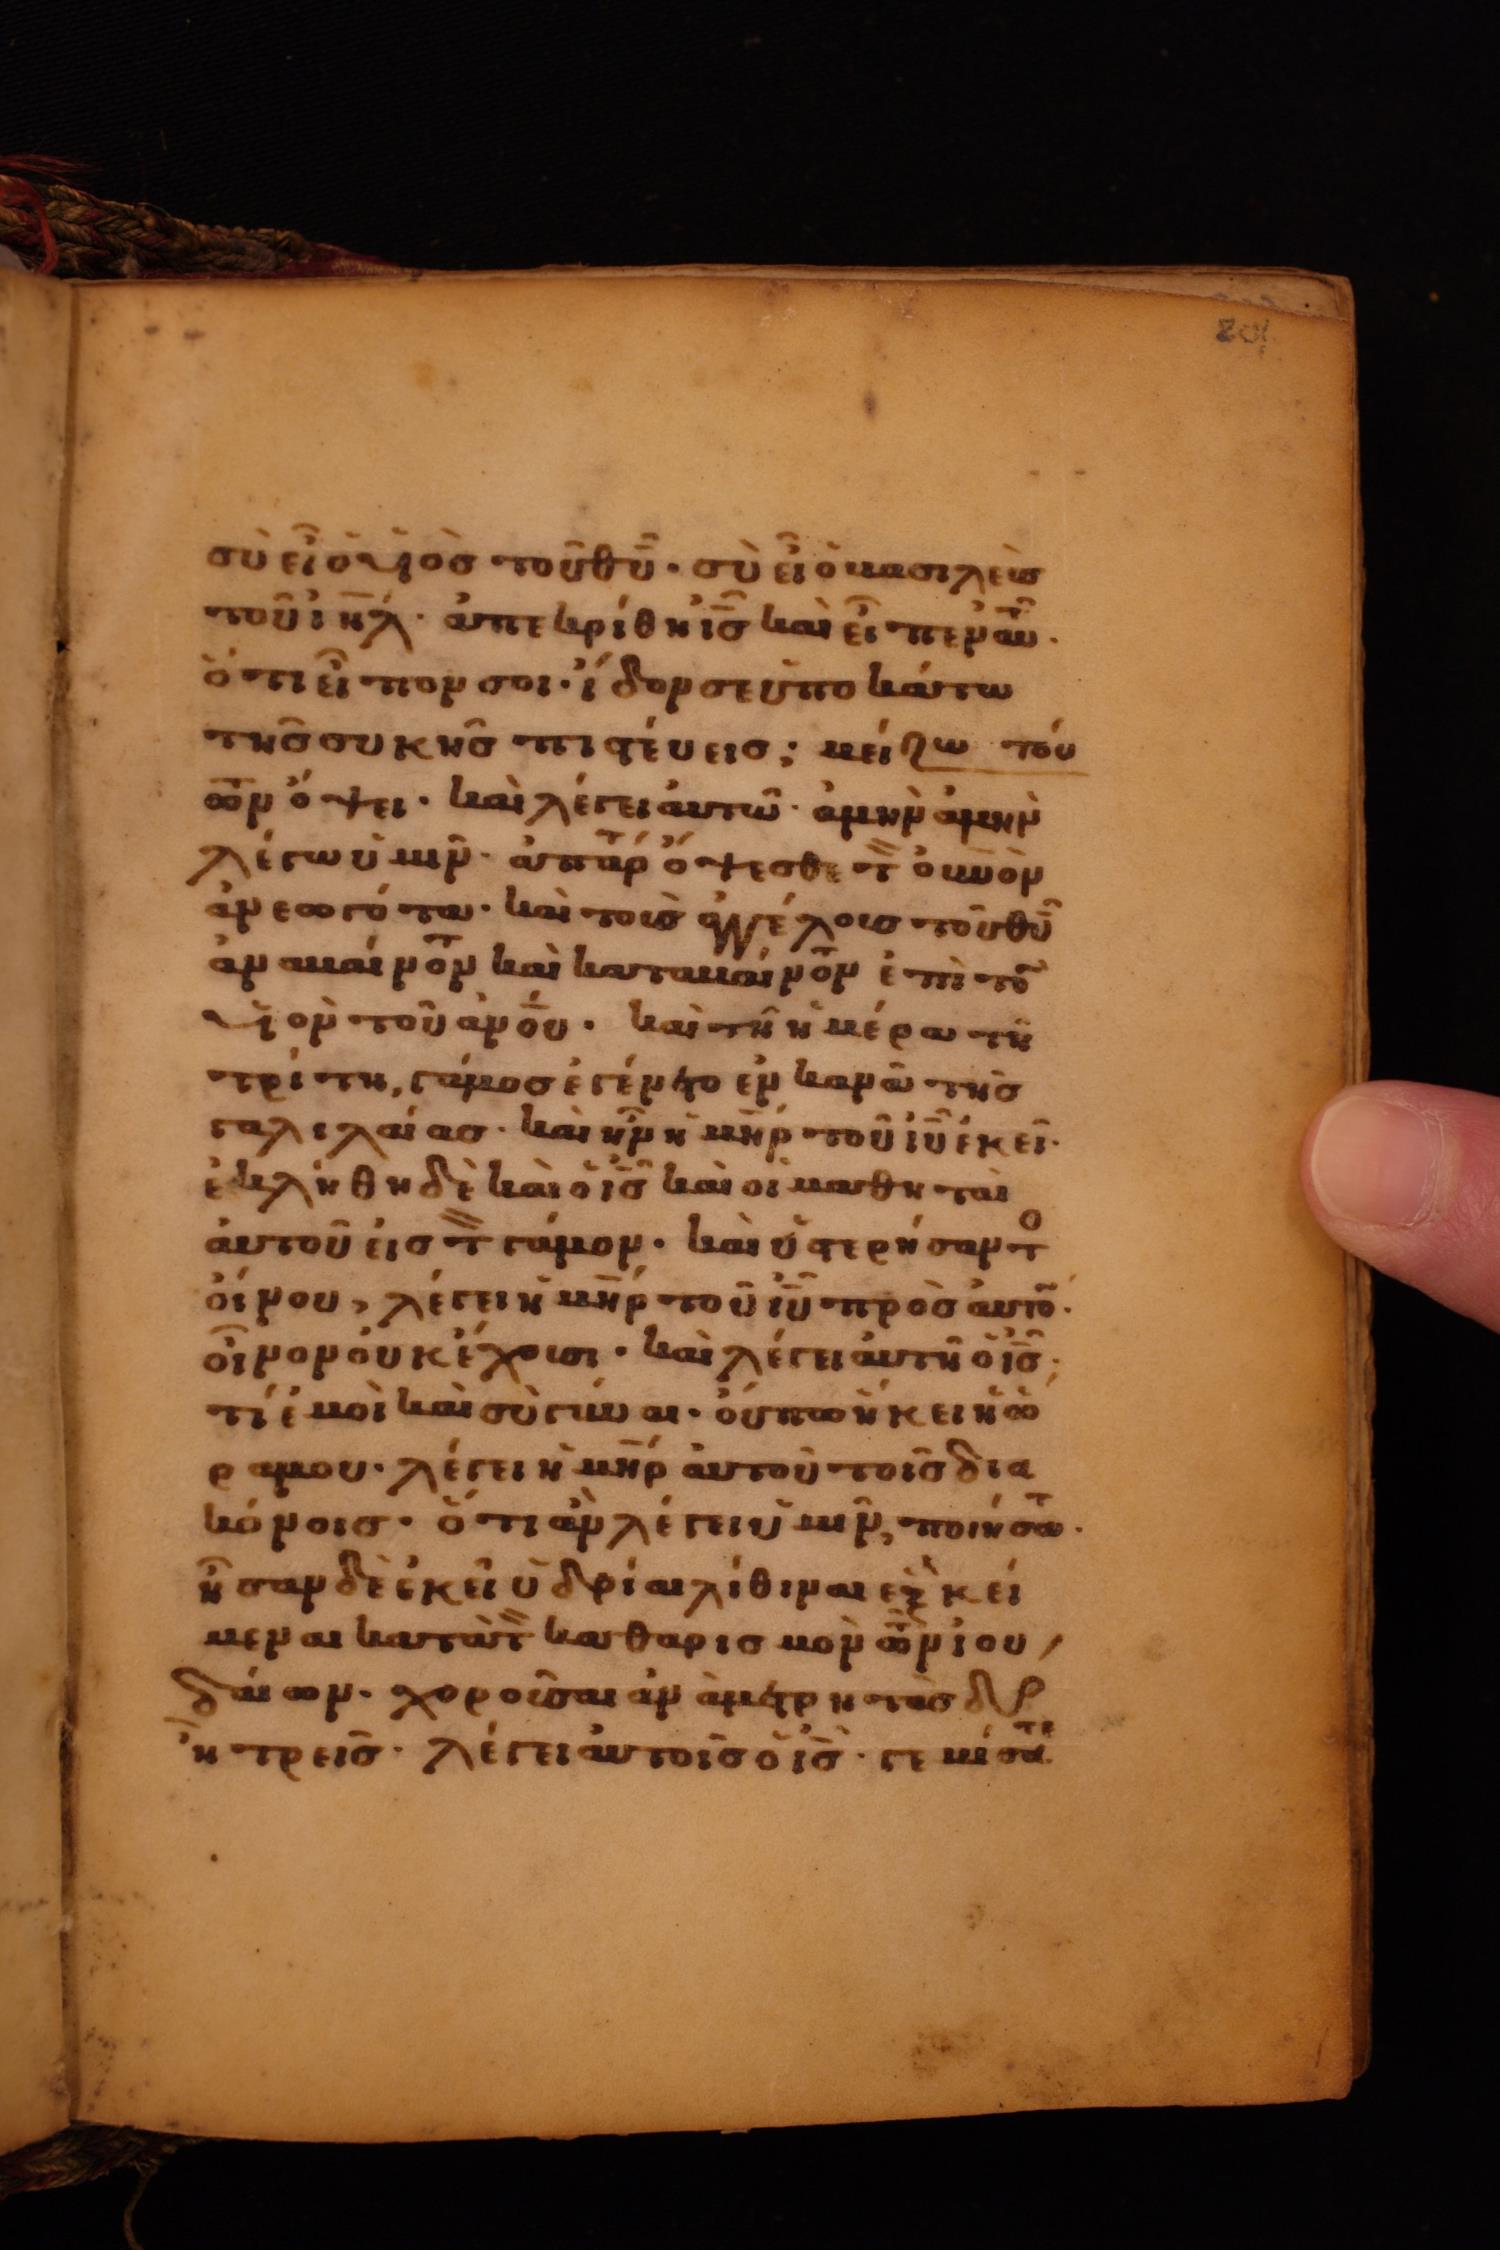 201
σὺ εἶ ὁ υἱὸσ τοῦ θῦ· σὺ εἶ ὁ βασιλεὺσ
τοῦ ιηλ· ἀπεκρίθη ισ καὶ εἶπεν αὐτ·
ὅτι εἶπον σοι· ἴδον σε ὑπὸ κάτω
τησ συκησ πιστέυεισ; μείζω τού
των ὄψει· καὶ λέγει ἀυτῶ· ἀμὴν ἀμὴν
λέγω ὑμῖν· ἀπάρτ ὄψεσθε τ ουνον
ἀνεωγότα· καὶ τοὺσ ἀγγέλουσ τοῦ θῦ
ἀναβαίνοντ καὶ καταβαίνοντ ἐπὶ το
υἱὸν τοῦ ἀνου· καὶ τῆ ἡμέρα τῆ
τρίτη, γάμοσ ἐγένετο ἐν κανᾶ τῆσ
γαλιλαίασ· καὶ ἦν ἡ μηρ τοῦ ιῦ ἐκεῖ·
ἐκλήθη δὲ καὶ ὁ ισ καὶ οἱ μαθηταὶ
ἀυτοῦ εἰσ τ γάμον· καὶ ὑστερήσαντο
ὄινου, λέγει ἡ μηρ τοῦ ιῦ πρὸσ ἀυτο·
οἶνον ὀυκ ἔχουσι· καὶ λέγει ἀυτῆ ὁ ισ·
τί ἐμοὶ καὶ σὺ γύναι· ὄυπω ἥκει ἡ ὥ
ρα μου· λέγει ἡ μηρ ἀυτοῦ τοῖσ δια
κόνοισ· ὅτι ἂν λέγει ὑμῖν, ποιήσατ·
ἦσαν δὲ ἐκεῖ ὑδρίαι λίθιναι εξ κεί
μεναι κατὰ τ καθαρισμὸν των ἰου
δαίων· χοροῦσαι ἀνὰ μετρητὰσ δύο
ἢ τρεισ· λέγει ἀυτοῖσ ὁ ισ· γεμίσατε